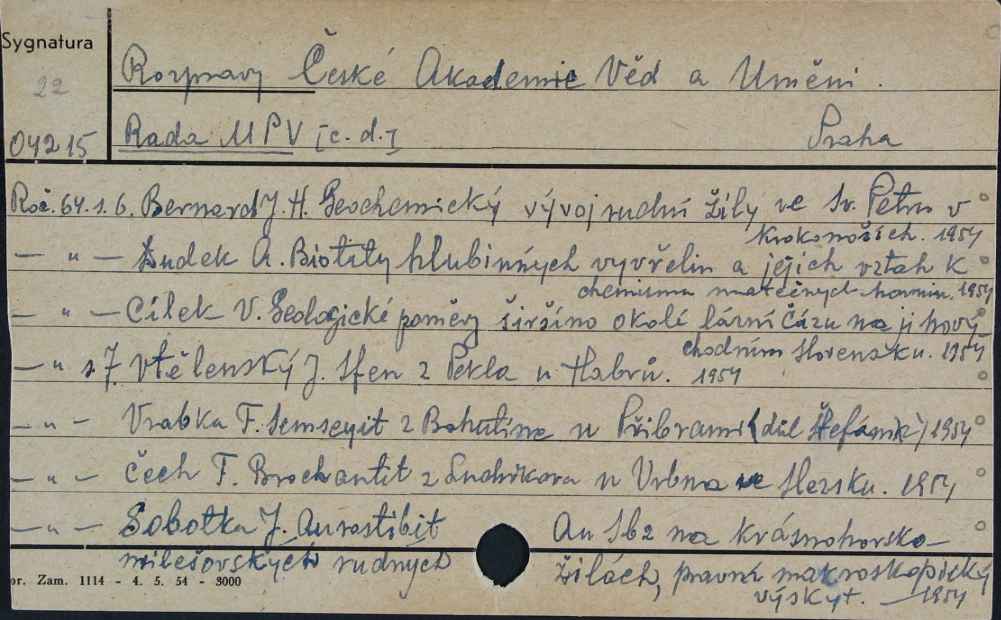 Sygnatura
22
04215
Rozpravy České Akademie Věd a Uměni.
Rada MPV [c.d.]
Praha
Roč. 64. s. 6. Bernard J. H. Geochemický vývoj rudní žily ve Sv. Petru v
Krokonoších. 1954
— " — Dudek A. Biotity hlubinných vyvřelin a jejich vztah k
chemismu matečných hornin. 1954
— " — Cílek V. Geologické poměry širšího okolí lázní Čížu na ji hový-
chodním Slovensku. 1954
— " s 7. Vtělenský J. Sfen z Pekla u Habrů. 1954
— " — Vrabka F. Semseyit z Bohutína u Příbrami (důl Štefánik) 1954
— " — Čech F. Brochantit z Ludvíkova u Vrbna ve Slezsku. 1954
— " — Sobotka J. Aurostibit Au Sb2 na krásnohorsko-
milešovských rudnych žilách, pravni makroskopický
výskyt. — 1954
or. Zam. 1114 - 4. 5. 54 - 3000